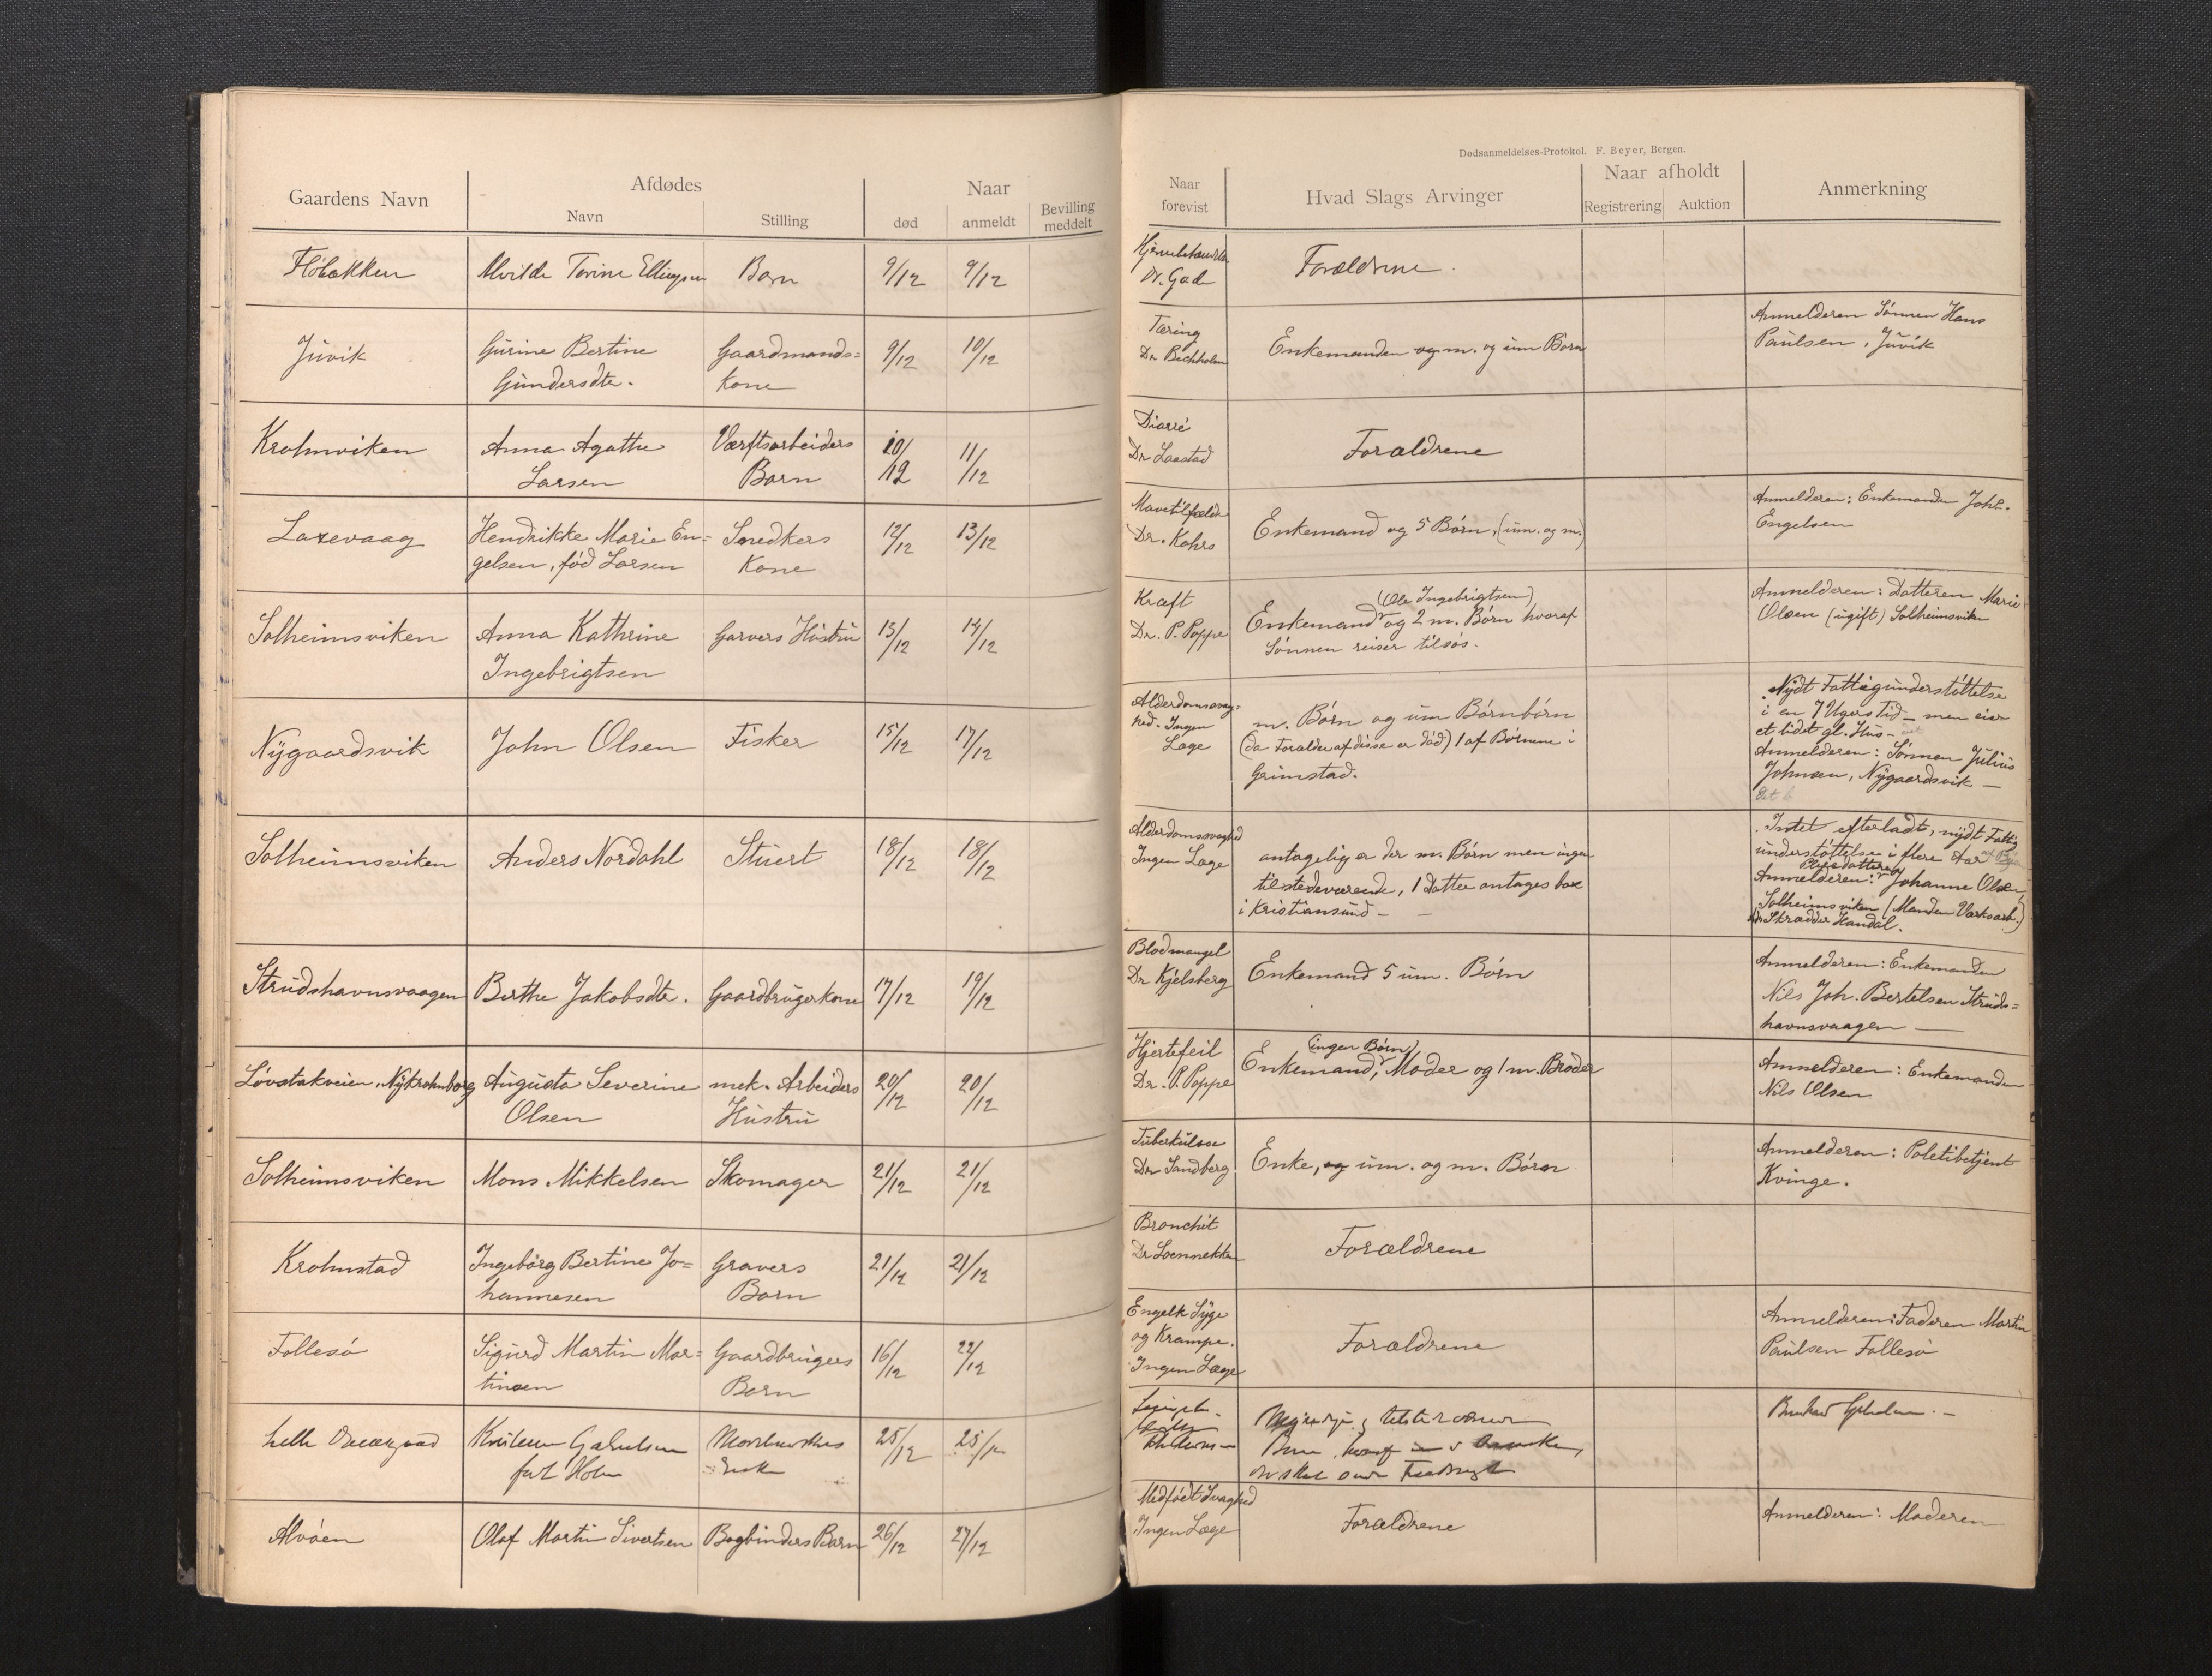 Dødsanmeldelses-Protokol. F. Beyer, Bergen.
Gaardens Navn
Afdødes
Navn
Stilling
Naar
død
anmeldt
Bevilling
meddelt
Naar
forevist
Hvad Slags Arvinger
Naar afholdt
Registrering
Auktion
Anmerkning
Fløbakken
Alvilde Torine Ellingsen
Barn
9/12
9/12
Dr. Gade
Forældrene.
Juvik
Gurine Bertine
Gundersdtr.
Gaardmands=
Kone
9/12
10/12
Tæring
Dr. Buchholm
Enkemanden og m. og um Børn
Anmelderen Sønnen Hans
Paulsen, Juvik
Krohnviken
Anna Agathe
Larsen
Værftsarbeiders
Barn
10/12
11/12
Diarré
Dr Laastad
Forældrene
Laxevaag
Hendrikke Marie En=
gelsen, fød Larsen
Snedkers
Kone
12/12
13/12
Mavetilfælde
Dr. Kahrs
Enkemand og 5 Børn, (um. og m.)
Anmelderen: Enkemanden Johs.
Engelsen
Solheimsviken
Anna Kathrine
Ingebrigtsen
Garvers Hustru
13/12
14/12
Kræft
Dr. P. Poppe
(Ole Ingebrigtsen)
Enkemand og 2 m. Børn hvoraf
Sønnen reiser tilsøs.
Anmelderen: Datteren Marie
Olsen (ugift) Solheimsviken
Nygaardsvik
John Olsen
Fisker
15/12
17/12
Alderdomssvag=
hed. Ingen
Læge
m. Børn og um Børnbørn
(da Forældre af disse er død) 1 af Børnene i
Grimstad.
Nydt Fattigunderstøttelse
i en 7 Ugers Tid – men eier
et lidet gl. Hus –
Anmelderen: Sønnen Julius
Johnsen, Nygaardsvik –
Solheimsviken
Anders Nordahl
Stuert
18/12
18/12
Alderdomssvaghed
Ingen Læge
antagelig er der m. Børn men ingen
tilstedeværende, 1 Datter antages boe
i Kristiansund –
Intet efterladt, nydt Fattig
understøttelse i flere Aar
Pleiedatteren
Anmelderen: Johanne Olsen,
Solheimsviken (Manden Værksarb.)
Skrædder Handal.
Strudshavnsvaagen
Berthe Jakobsdtr.
Gaardbrugerkone
17/12
19/12
Blodmangel
Dr Kjelsberg
Enkemand 5 um. Børn
Anmelderen: Enkemanden
Nils Joh. Bertelsen Struds=
havnsvaagen –
Løvstakveien, Nykrohnborg
Augusta Severine
Olsen
mek. Arbeiders
Hustru
20/12
20/12
Hjertefeil
Dr. P. Poppe
(ingen Børn)
Enkemand, Moder og 1 m. Broder
Anmelderen: Enkemanden
Nils Olsen
Solheimsviken
Mons Mikkelsen
Skomager
21/12
21/12
Tuberkulose
Dr Sandberg
Enke, og um. og m. Børn
Anmelderen: Poletibetjent
Kvinge.
Krohnstad
Ingebørg Bertine Jo=
hannesen
Gravers
Barn
21/12
21/12
Bronchit
Dr Loennekken
Forældrene
Follesø
Sigurd Martin Mar=
tinsen
Gaardbrugers
Barn
16/12
22/12
Engelk Syge
og Krampe.
Ingen Læge
Forældrene
Anmelderen: Faderen Martin
Paulsen Follesø
født Holm
25/12
25/12
Alvøen
Olaf Martin Sivertsen
Bogbinders Barn
26/12
27/12
Medfødt Svaghed
Ingen Læge
Forældrene
Anmelderen: Moderen